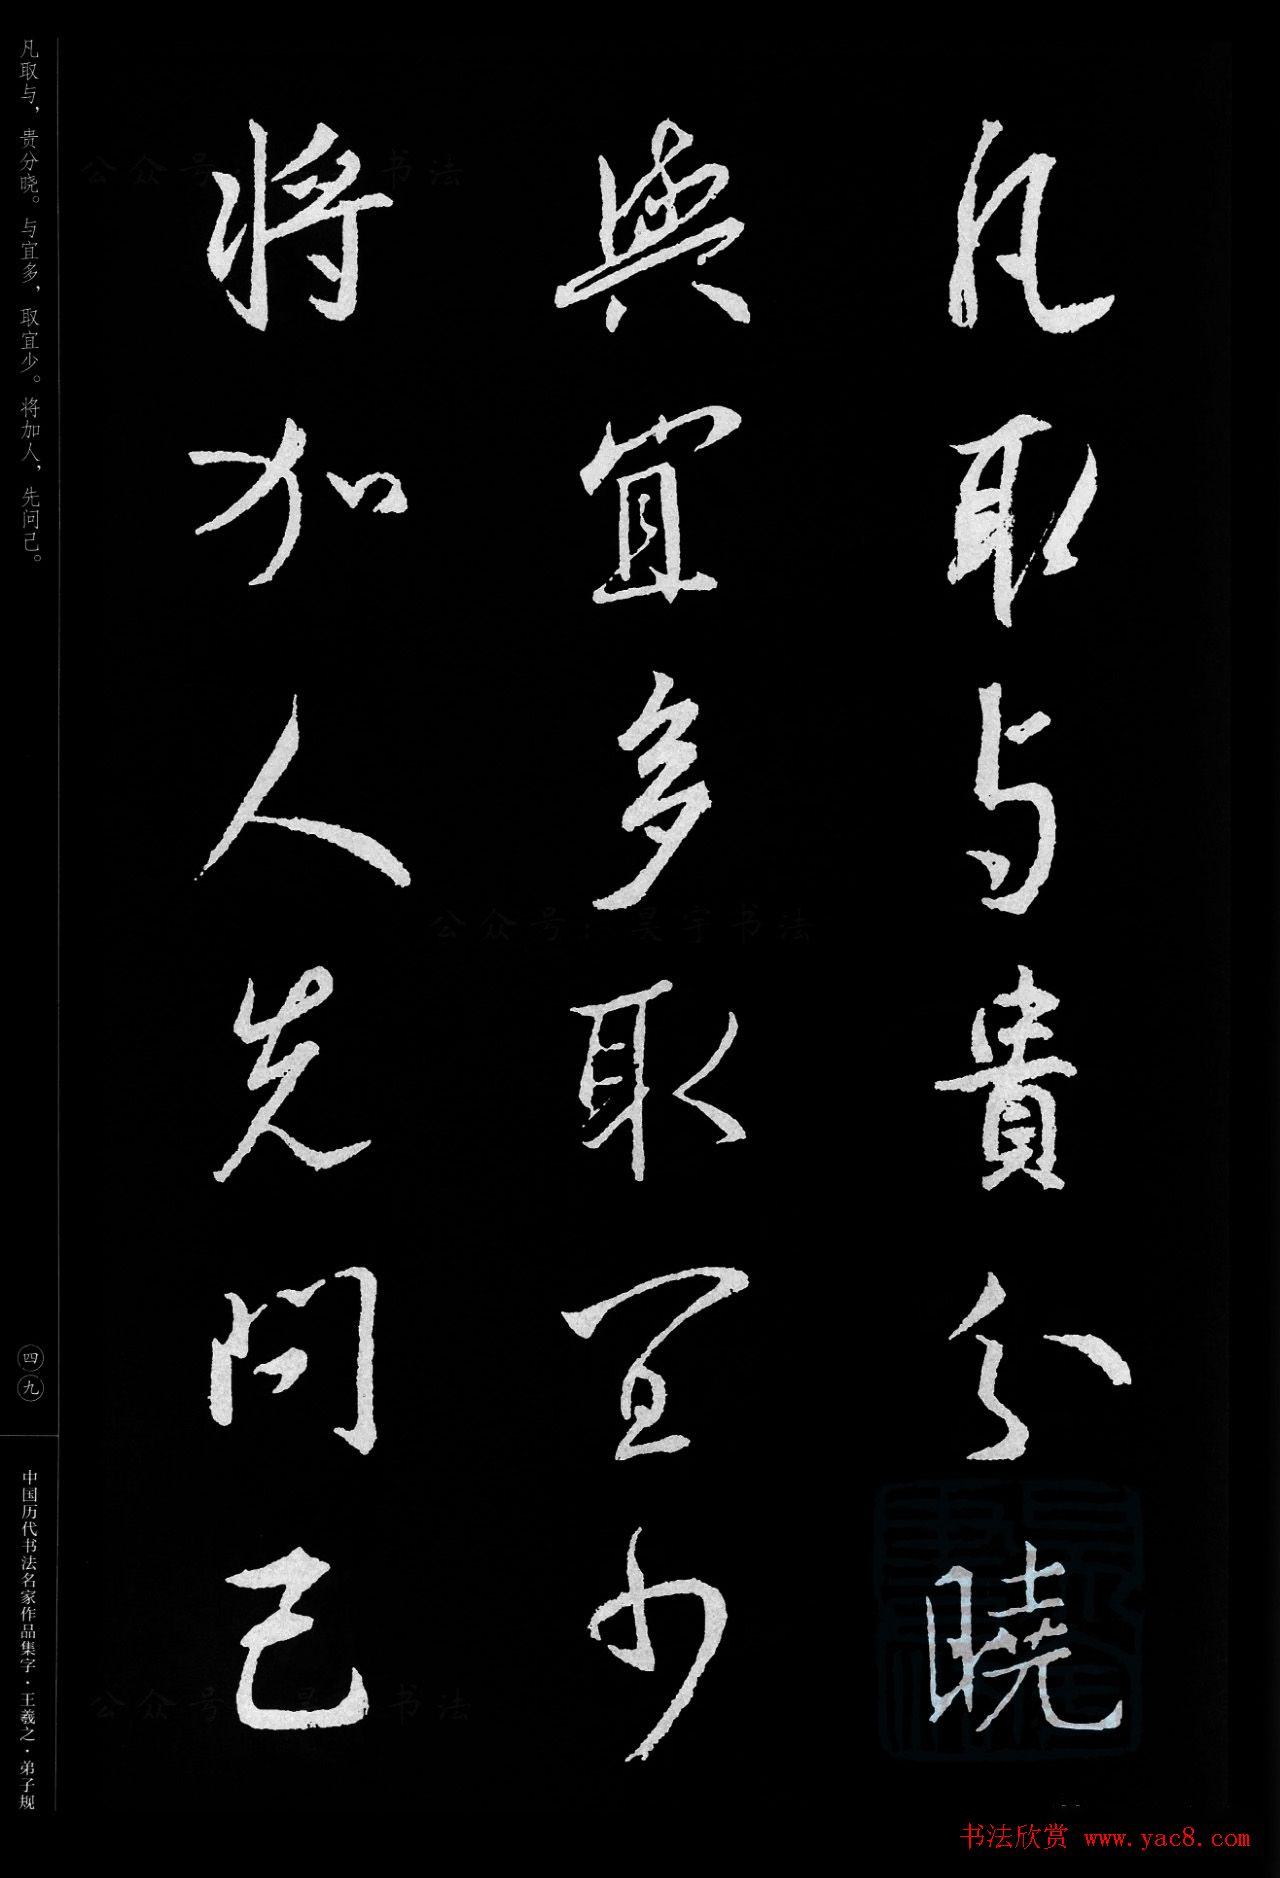 凡取与貴分曉
與宜多取宜少
将加人先問己
凡取与，贵分晓。与宜多，取宜少。将加人，先问己。
四九
中国历代书法名家作品集字·王羲之·弟子规
公众号 书法
公众号：昊宇书法
公众号 昊 书法
书法欣赏 www.yac8.com